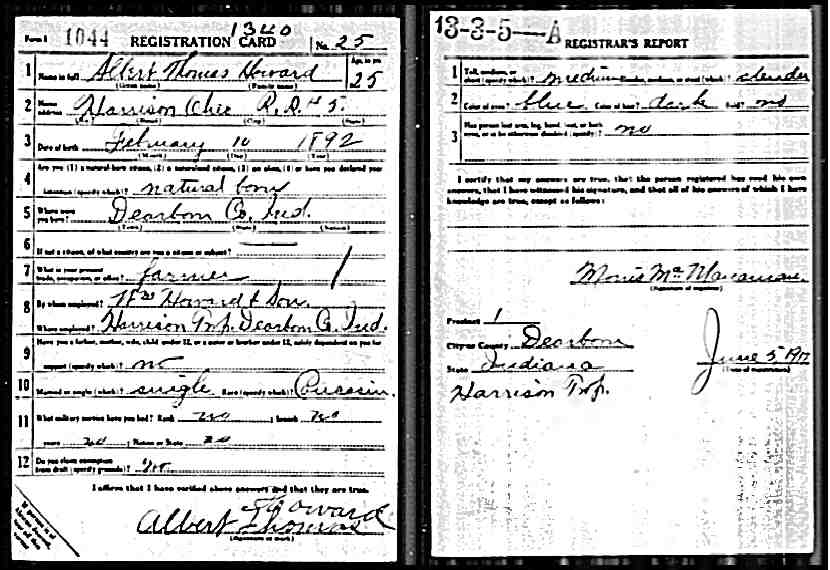 1340
Form 1 1044 REGISTRATION CARD No. 25
1 Name in full Albert Thomas Howard Age, in yrs. 25
(Given name) (Family name)
2 Home address Harrison Ohio R.R. # 5.
(No.) (Street) (City) (State)
3 Date of birth February 10 1892
(Month) (Day) (Year)
Are you (1) a natural-born citizen, (2) a naturalized citizen, (3) an alien, (4) or have you declared your
4 intention (specify which)? natural born
5 Where were you born? Dearborn Co. Ind.
(Town) (State) (Nation)
6 If not a citizen, of what country are you a citizen or subject?
7 What is your present trade, occupation, or office? farmer
8 By whom employed? Wm Howard & Son.
Where employed? Harrison Twp. Dearborn Co. Ind.
9 Have you a father, mother, wife, child under 12, or a sister or brother under 12, solely dependent on you for
support (specify which)? no
10 Married or single (which)? single Race (specify which)?
11 What military service have you had? Rank no ; branch no
years no ; Nation or State no
12 Do you claim exemption from draft (specify grounds)? no
I affirm that I have verified above answers and that they are true.
Albert Thomas Howard
(Signature or mark)
13-3-5-A
REGISTRAR'S REPORT
1 Tall, medium, or short (specify which)? medium Slender, medium, or stout (which)? slender
2 Color of eyes? blue Color of hair? dark Bald? no
3 Has person lost arm, leg, hand, foot, or both eyes, or is he otherwise disabled (specify)? no
I certify that my answers are true, that the person registered has read his own
answers, that I have witnessed his signature, and that all of his answers of which I have
knowledge are true, except as follows:
(Signature of registrar)
Precinct 1
City or County Dearborn
State Indiana June 5 1917
(Date of registration)
Harrison Twp.